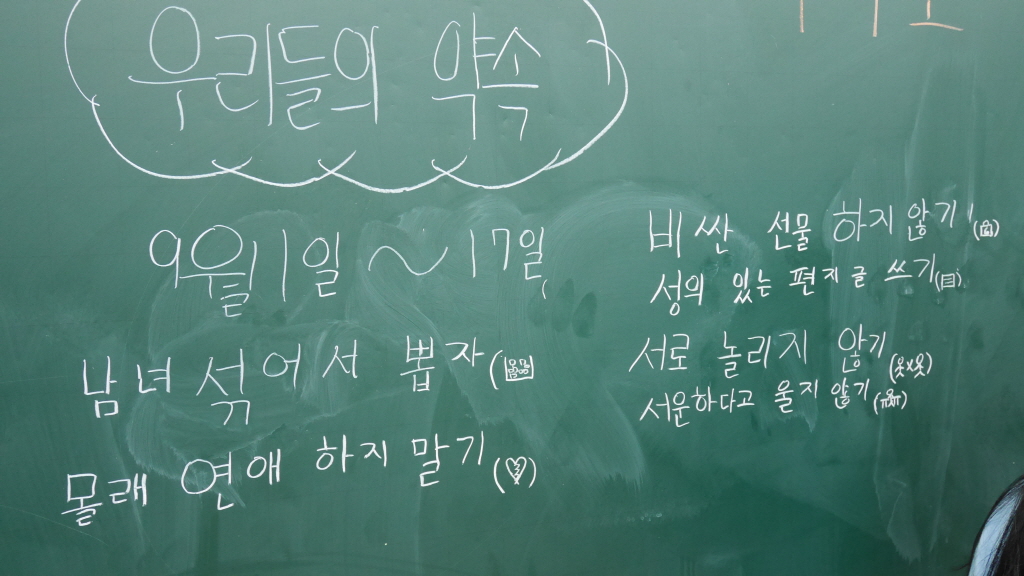 우리들의 약속
9월 11일 ~ 17일
남녀 섞어서 뽑자
몰래 연애 하지 말기
비싼 선물 하지 않기
성의 있는 편지글 쓰기
서로 놀리지 않기
서운하다고 울지 않기